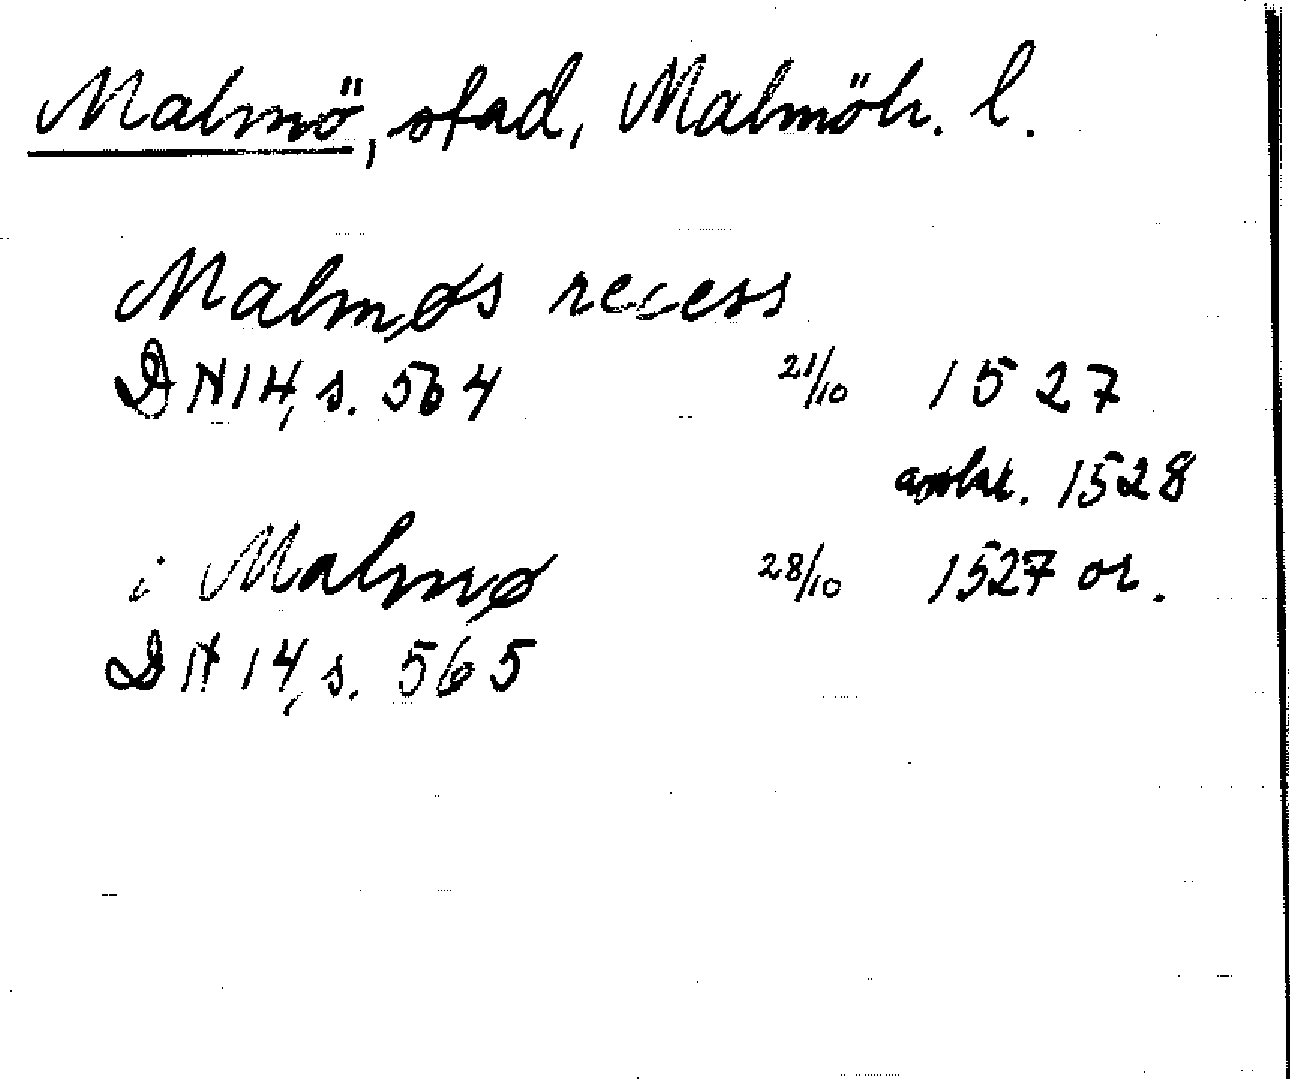 Malmö, stad, Malmöh. l.
Malmøs recess
DN 14, s. 564 21/10 1527
avskr. 1528
i Malmø 28/10 1527 or.
DN 14, s. 565